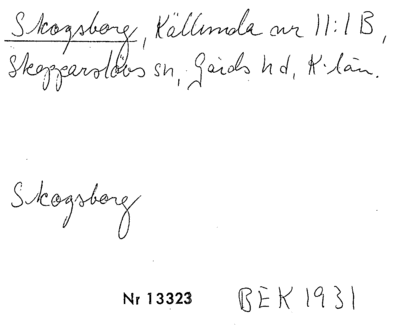 Skogsborg, Källunda nr 11:1 B,
Skepparslövs sn, Gärds hd, K-län.
Skogsborg
Nr 13323 BEK 1931